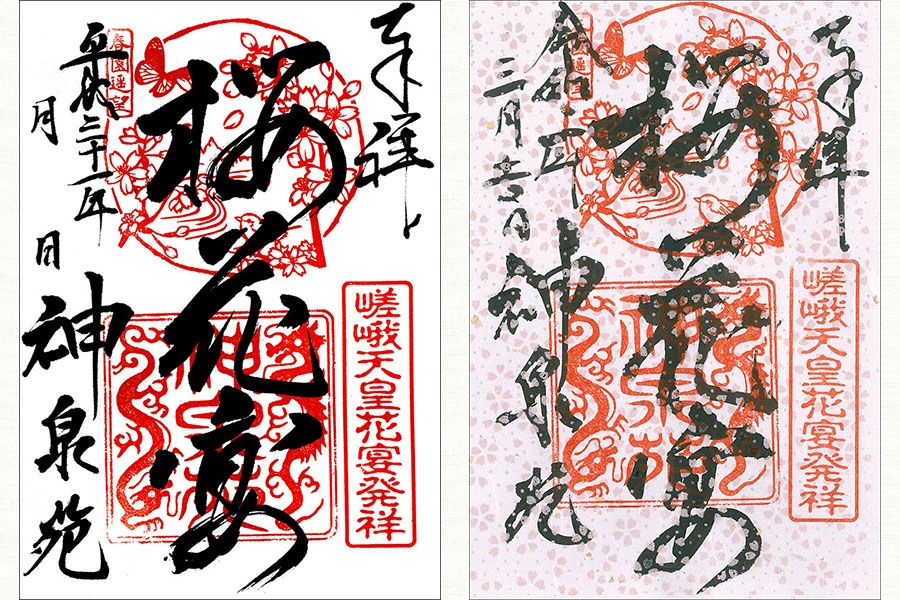 奉拝
嵯峨天皇花宴発祥
桜花宴
春園遥望
平成三十一年
月 日
神泉苑
奉拝
嵯峨天皇花宴発祥
桜花宴
神泉苑